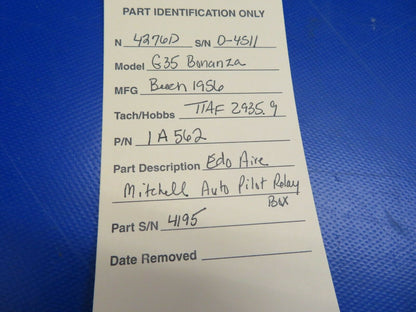 PART IDENTIFICATION ONLY
N 4276D S/N D-4511
Model G35 Bonanza
MFG Beech 1956
Tach/Hobbs TTAF 2935.9
P/N 1A562
Part Description Edo Aire
Mitchell Auto Pilot Relay
Box
Part S/N 4195
Date Removed